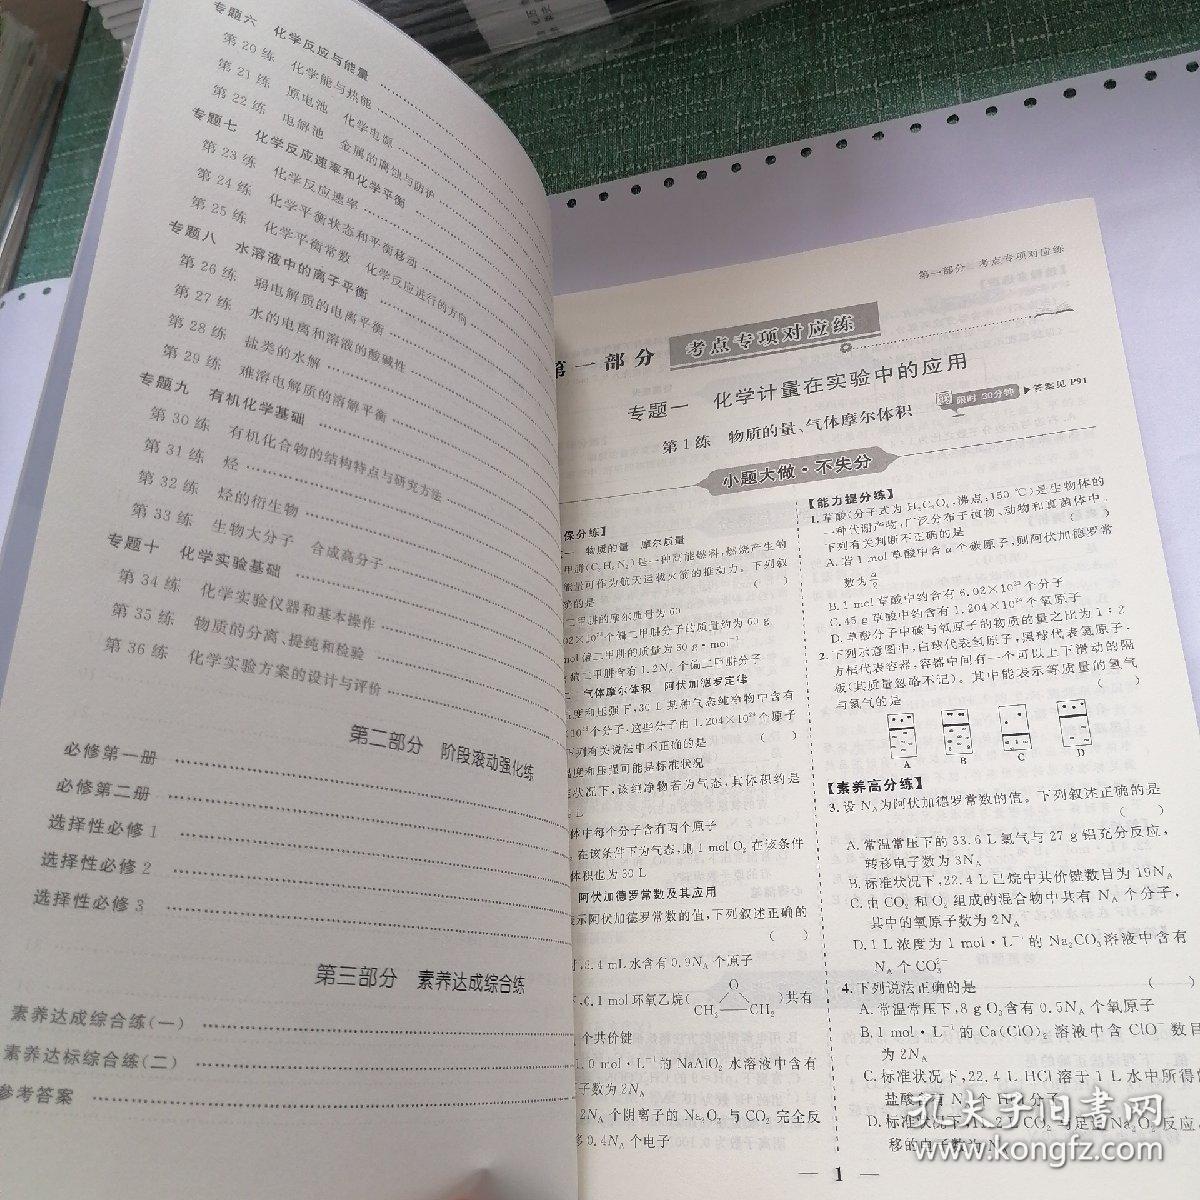 专题六 化学反应与能量
第20练 化学能与热能
第21练 原电池 化学电源
第22练 电解池 金属的腐蚀与防护
专题七 化学反应速率和化学平衡
第23练 化学反应速率
第24练 化学平衡状态和平衡移动
第25练 化学平衡常数 化学反应进行的方向
专题八 水溶液中的离子平衡
第26练 弱电解质的电离平衡
第27练 水的电离和溶液的酸碱性
第28练 盐类的水解
第29练 难溶电解质的溶解平衡
专题九 有机化学基础
第30练 有机化合物的结构特点与研究方法
第31练 烃
第32练 烃的衍生物
第33练 生物大分子 合成高分子
专题十 化学实验基础
第34练 化学实验仪器和基本操作
第35练 物质的分离、提纯和检验
第36练 化学实验方案的设计与评价
第二部分 阶段滚动强化练
必修第一册
必修第二册
选择性必修1
选择性必修2
选择性必修3
第三部分 素养达成综合练
素养达成综合练(一)
素养达标综合练(二)
参考答案
第一部分 考点专项对应练
第一部分 考点专项对应练
专题一 化学计量在实验中的应用
第1练 物质的量、气体摩尔体积
限时 30分钟 ▶答案见P91
小题大做·不失分
保分练】
物质的量 摩尔质量
能量可作为航天运载火箭的推动力。下列叙
的是 ( )
二甲肼的摩尔质量为60
mol偏二甲肼的质量为60 g·mol⁻¹
气体摩尔体积 阿伏加德罗定律
度和压强下,30 L某种气态纯净物中含有
个分子,这些分子由1.204×10²⁴个原子
下列有关说法中不正确的是 ( )
温度和压强可能是标准状况
状况下,该纯净物若为气态,其体积约是
L
体中每个分子含有两个原子
在该条件下为气态,则1 mol O₂在该条件
体积也为30 L
阿伏加德罗常数及其应用
表示阿伏加德罗常数的值,下列叙述正确的
( )
mL水含有0.9N_A个原子
0.1 mol环氧乙烷(CH₂ O CH₂)共有
个共价键
.0 mol·L⁻¹的NaAlO₂水溶液中含有
子数为2N_A
2N_A个阴离子的Na₂O₂与CO₂完全反
移0.4N_A个电子
【能力提分练】
1.草酸(分子式为H₂C₂O₄,沸点:150 ℃)是生物体的
一种代谢产物,广泛分布于植物、动物和真菌体中。
下列有关判断不正确的是 ( )
A.若1 mol草酸中含a个碳原子,则阿伏加德罗常
数为a/2
B.1 mol草酸中约含有6.02×10²³个分子
C.45 g草酸中约含有1.204×10²⁴个氧原子
D.草酸分子中碳与氧原子的物质的量之比为1:2
2.下列示意图中,白球代表氢原子,黑球代表氦原子,
方框代表容器,容器中间有一个可以上下滑动的隔
板(其质量忽略不记)。其中能表示等质量的氢气
与氦气的是 ( )
A B C D
【素养高分练】
3.设N_A为阿伏加德罗常数的值。下列叙述正确的是
( )
A.常温常压下的33.6 L氯气与27 g铝充分反应,
转移电子数为3N_A
B.标准状况下,22.4 L己烷中共价键数目为19N_A
C.由CO₂和O₂组成的混合物中共有N_A个分子,
其中的氧原子数为2N_A
D.1 L浓度为1 mol·L⁻¹的Na₂CO₃溶液中含有
N_A个CO₃²⁻
4.下列说法正确的是 ( )
A.常温常压下,8 g O₃含有0.5N_A个氧原子
B.1 mol·L⁻¹的Ca(ClO)₂溶液中含ClO⁻数目
为2N_A
C.标准状况下,22.4 L HCl溶于1 L水中所得的
D.标准状况下,11.2 L CO₂与足量Na₂O₂反应
— 1 —
孔夫子旧书网
www.kongfz.com